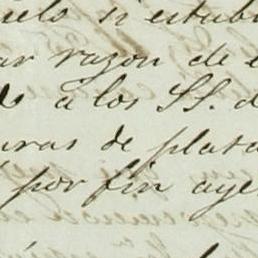 si estab
ar razon de e
a los SS. d
uras de plata
por fin aye